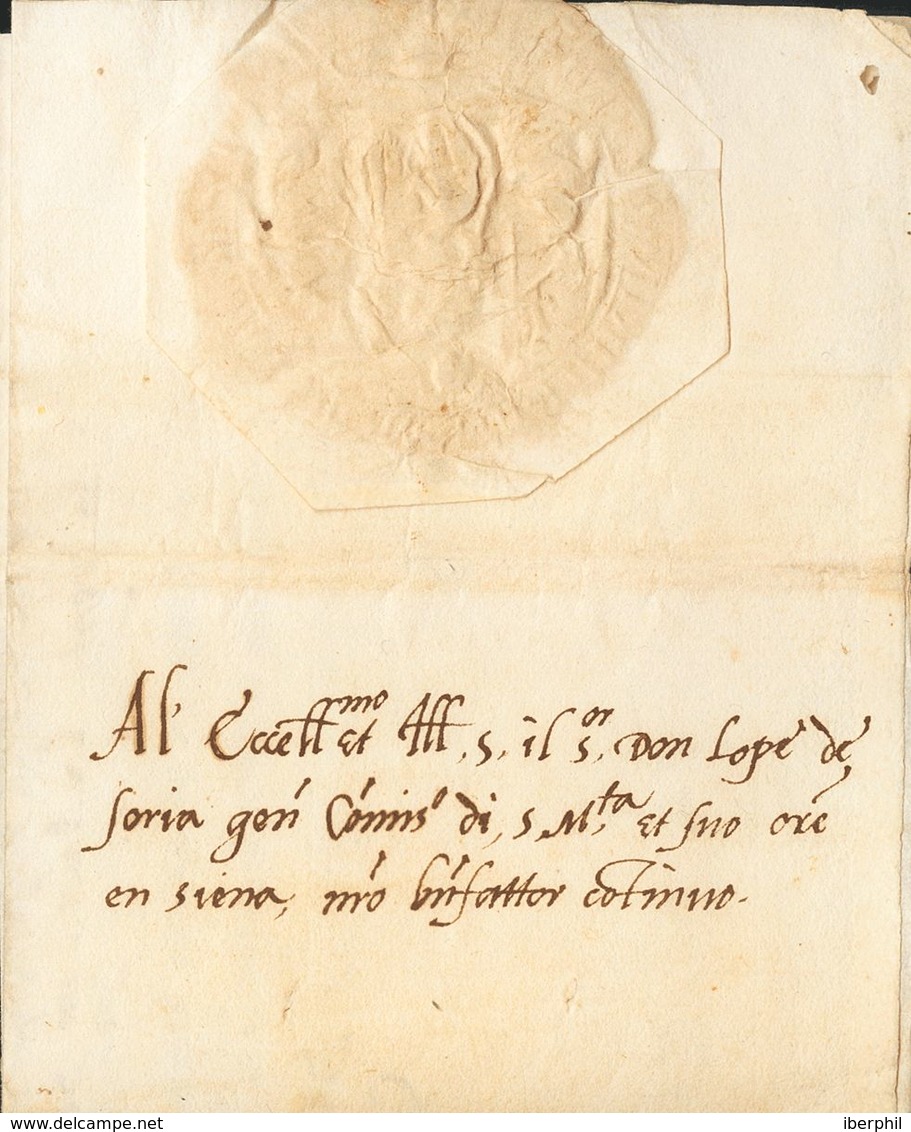 Al Eccell^mo et Ill. S. il S^or. Don Lope de
soria gen̄ Cōmis^o di S. M^ta et suo orē
en siena, nr̄o bn̄fattor cōtinuo.
www.delcampe.net
iberphil